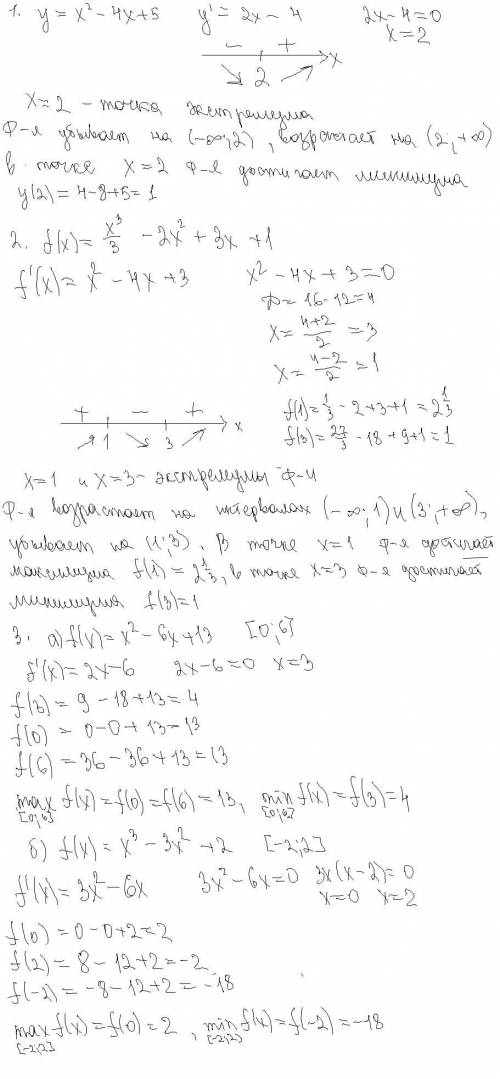 1. y = x² - 4x + 5   y' = 2x - 4   2x - 4 = 0
x = 2
- +
2 x
x = 2 - точка экстремума
Ф-я убывает на (-∞; 2), возрастает на (2; +∞)
в точке x = 2 ф-я достигает минимума
y(2) = 4 - 8 + 5 = 1
2. f(x) = x³/3 - 2x² + 3x + 1
f'(x) = x² - 4x + 3   x² - 4x + 3 = 0
D = 16 - 12 = 4
x = (4+2)/2 = 3
x = (4-2)/2 = 1
+ - +
1 3 x
f(1) = 1/3 - 2 + 3 + 1 = 2 1/3
f(3) = 27/3 - 18 + 9 + 1 = 1
x = 1 и x = 3 - экстремумы ф-и
Ф-я возрастает на интервалах (-∞; 1) и (3; +∞),
убывает на (1; 3). В точке x = 1 ф-я достигает
максимума f(1) = 2 1/3, в точке x = 3 ф-я достигает
минимума f(3) = 1
3. а) f(x) = x² - 6x + 13   [0; 6]
f'(x) = 2x - 6   2x - 6 = 0   x = 3
f(3) = 9 - 18 + 13 = 4
f(0) = 0 - 0 + 13 = 13
f(6) = 36 - 36 + 13 = 13
max f(x) = f(0) = f(6) = 13, min f(x) = f(3) = 4
[0; 6] [0; 6]
б) f(x) = x³ - 3x² + 2   [-2; 2]
f'(x) = 3x² - 6x   3x² - 6x = 0   3x(x - 2) = 0
x = 0   x = 2
f(0) = 0 - 0 + 2 = 2
f(2) = 8 - 12 + 2 = -2
f(-2) = -8 - 12 + 2 = -18
max f(x) = f(0) = 2, min f(x) = f(-2) = -18
[-2; 2] [-2; 2]